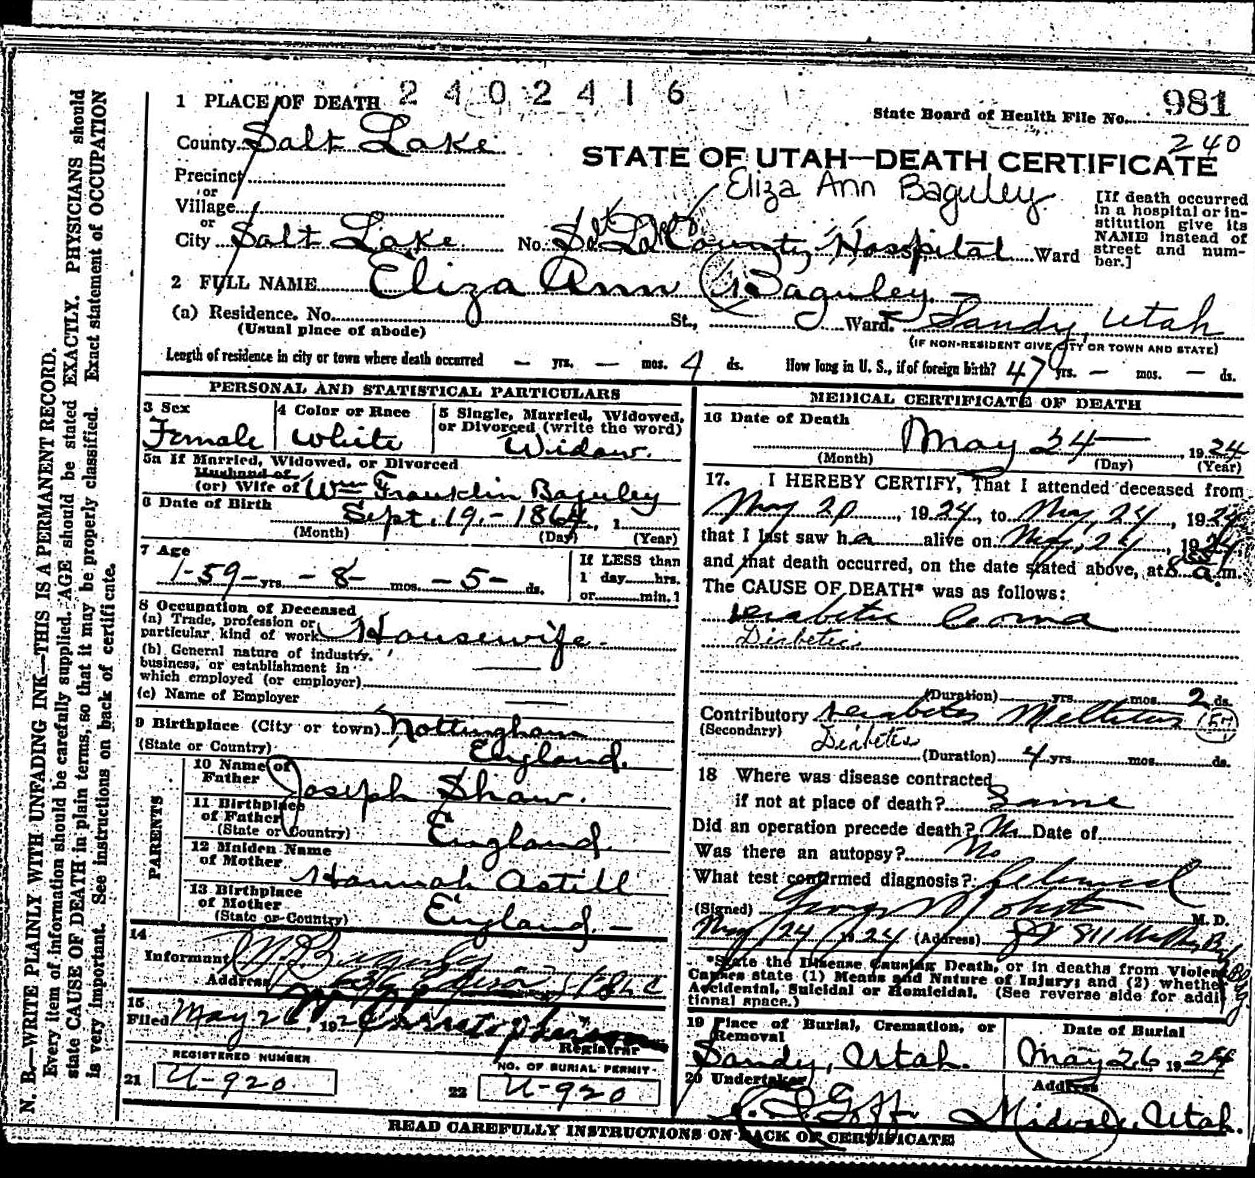 2402416
1 PLACE OF DEATH
State Board of Health File No. 981
240
County Salt Lake
STATE OF UTAH—DEATH CERTIFICATE
Precinct
or
Village
or
Eliza Ann Baguley
[If death occurred in a hospital or institution give its NAME instead of street and number.]
City Salt Lake No. S. L. County Hospital Ward
2 FULL NAME Eliza Ann Baguley
(a) Residence. No. St., Ward. Sandy, Utah
(Usual place of abode)
(IF NON-RESIDENT GIVE CITY OR TOWN AND STATE)
Length of residence in city or town where death occurred — yrs. — mos. 4 ds. How long in U. S., if of foreign birth? 47 yrs. — mos. — ds.
PERSONAL AND STATISTICAL PARTICULARS
3 Sex
Female
4 Color or Race
White
5 Single, Married, Widowed, or Divorced (write the word)
Widow.
5a If Married, Widowed, or Divorced
Husband of
(or) Wife of Wm Franklin Baguley
6 Date of Birth
Sept. 19.-1864, 1
(Month) (Day) (Year)
7 Age
1-59- yrs. -8- mos. -5- ds.
If LESS than
1 day hrs.
or min.1
8 Occupation of Deceased
(a) Trade, profession or
particular kind of work Housewife.
(b) General nature of industry,
business, or establishment in
which employed (or employer)
(c) Name of Employer
9 Birthplace (City or town) Nottingham
(State or Country) England.
PARENTS
10 Name of
Father Joseph Shaw.
11 Birthplace
of Father
(State or Country) England.
12 Maiden Name
of Mother Hannah Astill
13 Birthplace
of Mother
(State or Country) England.—
14
Informant Baguley
Address
15
Filed May 26, 192
Registrar
REGISTERED NUMBER
21 U-920
NO. OF BURIAL PERMIT
22 U-920
MEDICAL CERTIFICATE OF DEATH
16 Date of Death
May 24 1924
(Month) (Day) (Year)
17. I HEREBY CERTIFY, That I attended deceased from
May 20, 1924, to May, 24, 1924
that I last saw her alive on May, 24, 1924
and that death occurred, on the date stated above, at 8 a.m.
The CAUSE OF DEATH* was as follows:
Diabetic Coma
Diabetic
(Duration) yrs. mos. 2 ds.
Contributory Diabetes Mellitus
(Secondary) Diabetes
(Duration) 4 yrs. mos. ds.
18 Where was disease contracted
if not at place of death? Same
Did an operation precede death? No Date of
Was there an autopsy? No
What test confirmed diagnosis? Clinical
(Signed) M. D.
May 24 1924 (Address)
*State the Disease Causing Death, or in deaths from Violent
Causes state (1) Means and Nature of Injury; and (2) whether
Accidental, Suicidal or Homicidal. (See reverse side for addi
tional space.)
19 Place of Burial, Cremation, or
Removal
Sandy, Utah.
Date of Burial
May 26 1924
20 Undertaker
Goff
Address
Midvale, Utah.
READ CAREFULLY INSTRUCTIONS ON BACK OF CERTIFICATE
N. B.—WRITE PLAINLY WITH UNFADING INK—THIS IS A PERMANENT RECORD.
Every item of information should be carefully supplied. AGE should be stated EXACTLY. PHYSICIANS should
state CAUSE OF DEATH in plain terms, so that it may be properly classified. Exact statement of OCCUPATION
is very important. See instructions on back of certificate.